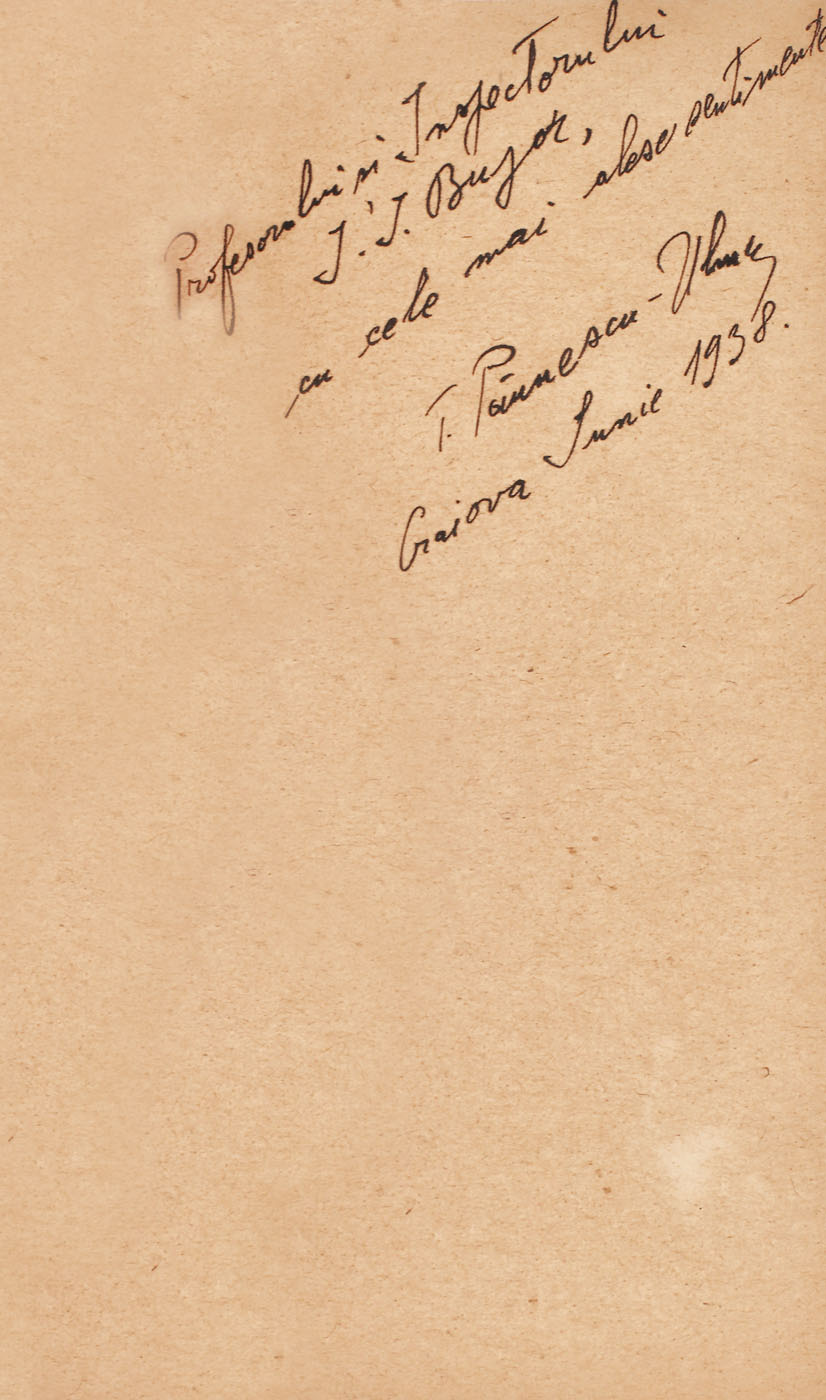 Profesorului si Inspectorului
I. I. Bujor,
cu cele mai alese sentimente
T. Păunescu-Ulmu
Craiova Iunie 1938.